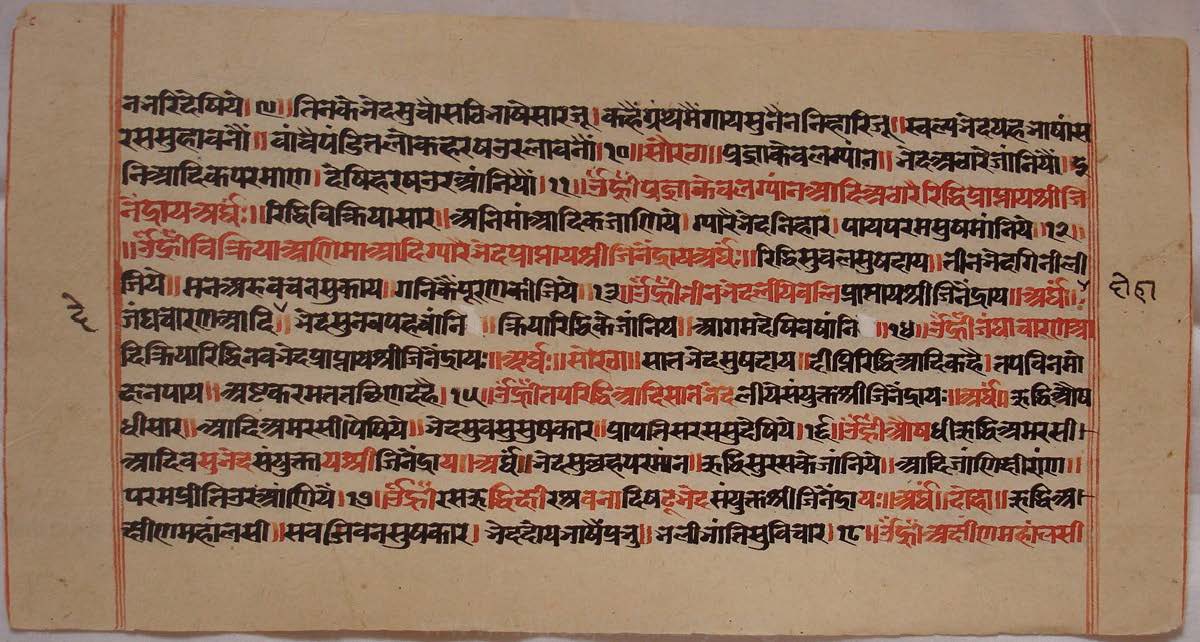 ननरिदेषिये। ९।। तिनके भेद सुचौसवि भाषे सार जू। कहैं ग्रंथमैं गाय सुनैन निहारि जू।। स्वल्प भेद यह भाषां स
रस सुहावनौं।। वांचै पंडित लोक हरष उर लावनौं। १०। सोरठा।। प्रज्ञा केवल ग्यांन।। भेद अठारे जांनियौं। दु
नि आदिक परमाण। देषि हरष उर आंनियौं। ११। ॐह्रीं प्रज्ञा केवल ग्यांन आदि अठारै रिद्धि प्राप्ताय श्री जि
नेंद्राय अर्घः।। रिद्धि विक्रिया सार।। अनिमां आदिक जाणिये। ग्यारै भेद निहार। पाय परम सुष मांनिये। १२।।
।। ॐह्रीं विक्रिया अणिमा आदि ग्यारै भेद प्राप्ताय श्री जिनेंद्राय अर्घः।। रिद्धि सुबल सुषदाय।। तीन भेद गिनी ली
जिये।। मन अरु वचन सुकाय। गनिकैं पूरण कीजिये। १३। ॐह्रीं तीन भेद लीये बलि प्राप्ताय श्री जिनेंद्राय।। अर्घ।। दोहा
जंघचारण आदि।। भेद सु नव पहचांनि।। क्रिया रिद्धि के जांनिये।। आगम देषि वषांनि।। १४। ॐह्रीं जंघाचारण आ
दि क्रिया रिद्धि नव भेद प्राप्ताय श्री जिनेंद्रायः।। अर्घः।। सोरठा।। सात भेद सुषदाय। दीप्ति रिद्धि आदिक कहै। तप विन मो
क्ष न पाय।। अष्ट करम तत छिण दहै। १५। ॐह्रीं तप रिद्धि आदि सात भेद लीये संयुक्त श्री जिनेंद्रायः।। अर्घ।। ऋद्धि औष
धी सार।। आदि अमरसी पेषिये।। भेद सुवसु सुषकार।। प्रापति सरस सु देषिये। १६। ॐह्रीं औषधी ऋद्धि अमरसी
आदि वसु भेद संयुक्ताय श्री जिनेंद्राय।। अर्घ।। भेद सु छह परमांन।। ऋद्धि सुरस के जांनिये।। आदि जांणि क्षीरांण।।
परम प्रीति उर आंणियै। १७। ॐह्रीं रस ऋद्धि क्षीर अवनादि षटू भेद संयुक्त श्री जिनेंद्रायः।। अर्घ।। दोहा।। ऋद्धि अ
क्षीण महांलसी।। सब जिवन सुषकार। भेद दोय भाषै प्रभु।। भली भांति सुविचार। १८।। ॐह्रीं अक्षीण महांलसी